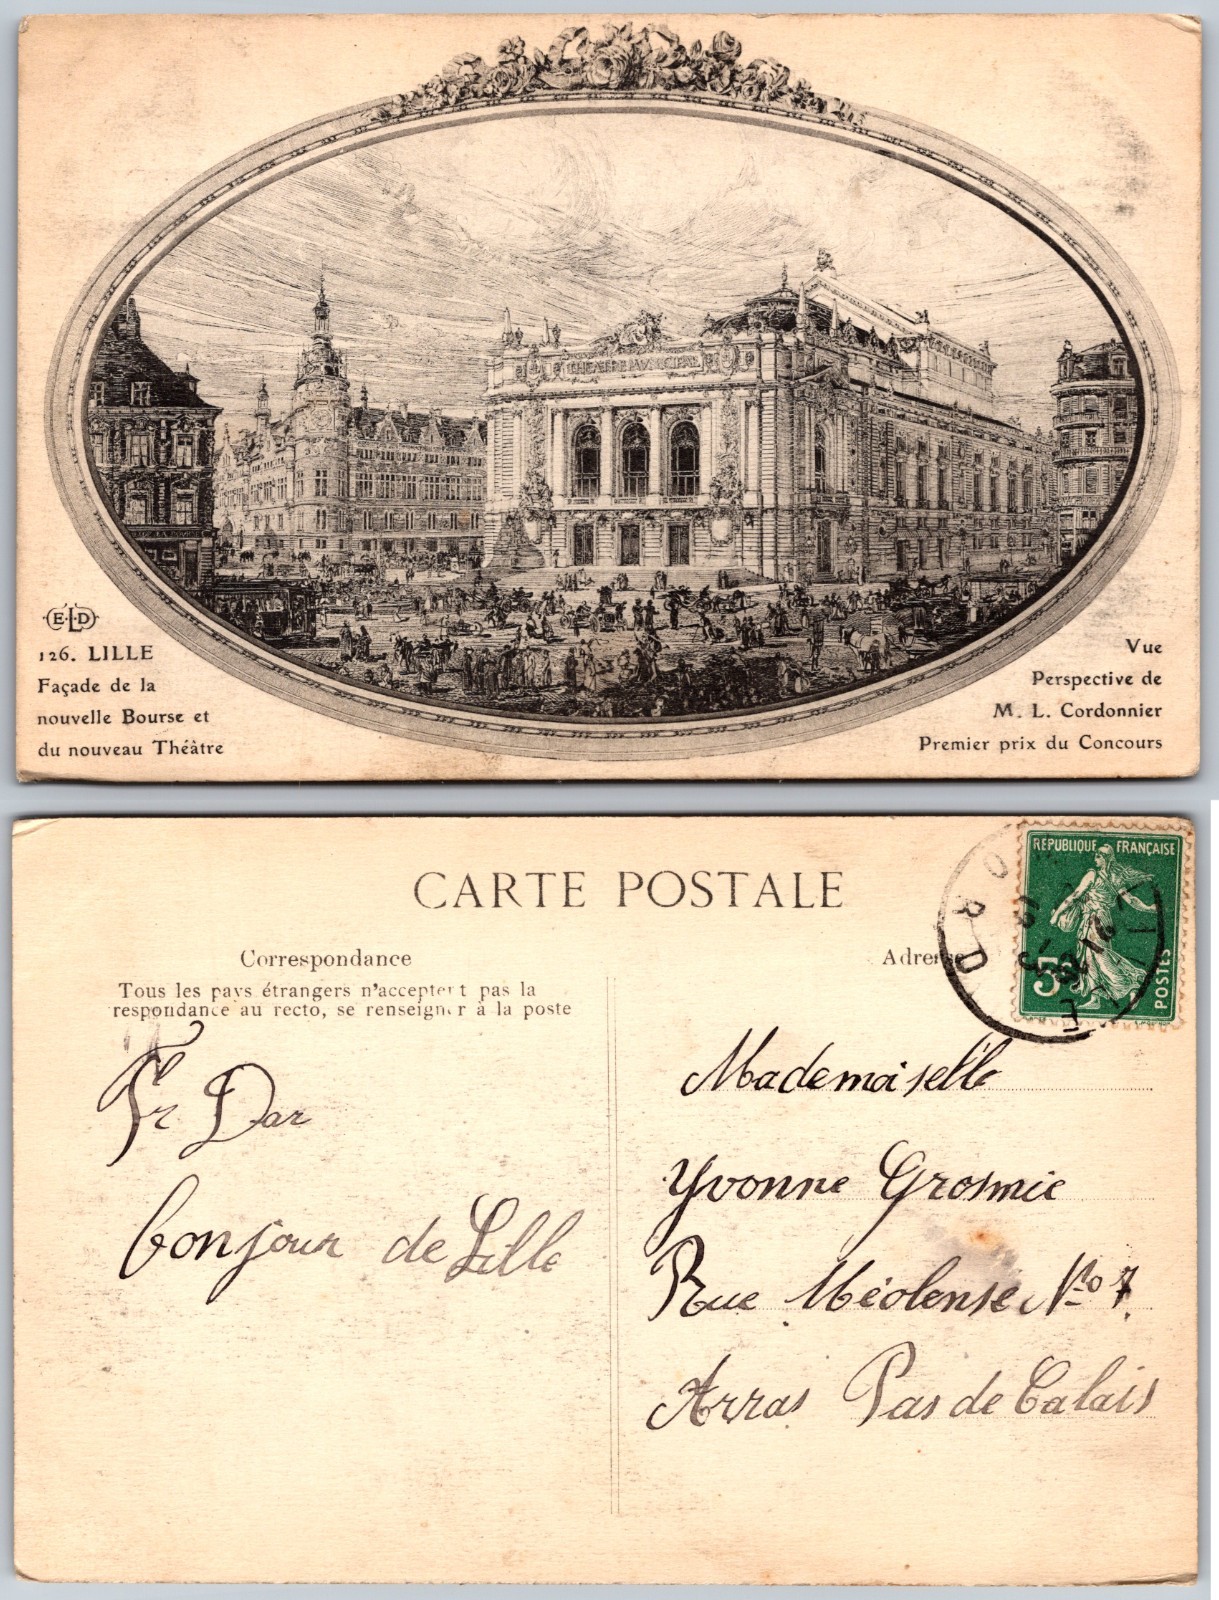 THEATRE MVNICIPAL
E.L.D
126. LILLE
Façade de la
nouvelle Bourse et
du nouveau Théâtre
Vue
Perspective de
M. L. Cordonnier
Premier prix du Concours
CARTE POSTALE
Correspondance
Tous les pays étrangers n'acceptent pas la
respondance au recto, se renseigner à la poste
bonjour de Lille
Adresse
REPUBLIQUE FRANÇAISE
5c
POSTES
ORD
Mademoiselle
Yvonne Grosmie
Rue Méolense No 7.
Arras Pas de Calais